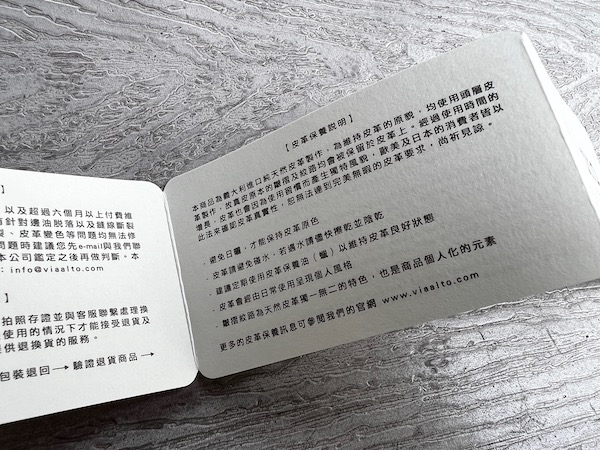 】
以及超過六個月以上付費維
針對邊油脫落以及縫線斷製
、皮革變色等問題均無法修
問題時建議您先e-mail與我們聯
本公司鑑定之後再做判斷。本
: info@viaalto.com
】
拍照存證並與客服聯繫處理換
使用的情況下才能接受退貨及
提供退換貨的服務。
包裝退回→驗證退貨商品→
【皮革保養說明】
本商品為義大利進口純天然皮革製作，為維持皮革的原貌，均使用頭層皮
革製作，故真皮原本的皺摺及紋路均會被保留於皮革上。經過使用時間的
增長，皮革也會因為使用習慣而產生獨特風貌，歐美及日本的消費者皆以
此法來確認皮革真實性，恕無法達到完美無瑕的皮革要求，尚祈見諒。
．避免日曬，才能保持皮革原色
．皮革請避免碰水，若遇水請儘快擦乾並陰乾
．建議定期使用皮革保養油（蠟）以維持皮革良好狀態
．皮革會經由日常使用呈現個人風格
．皺摺紋路為天然皮革獨一無二的特色，也是商品個人化的元素
更多的皮革保養訊息可參閱我們的官網 www.viaalto.com